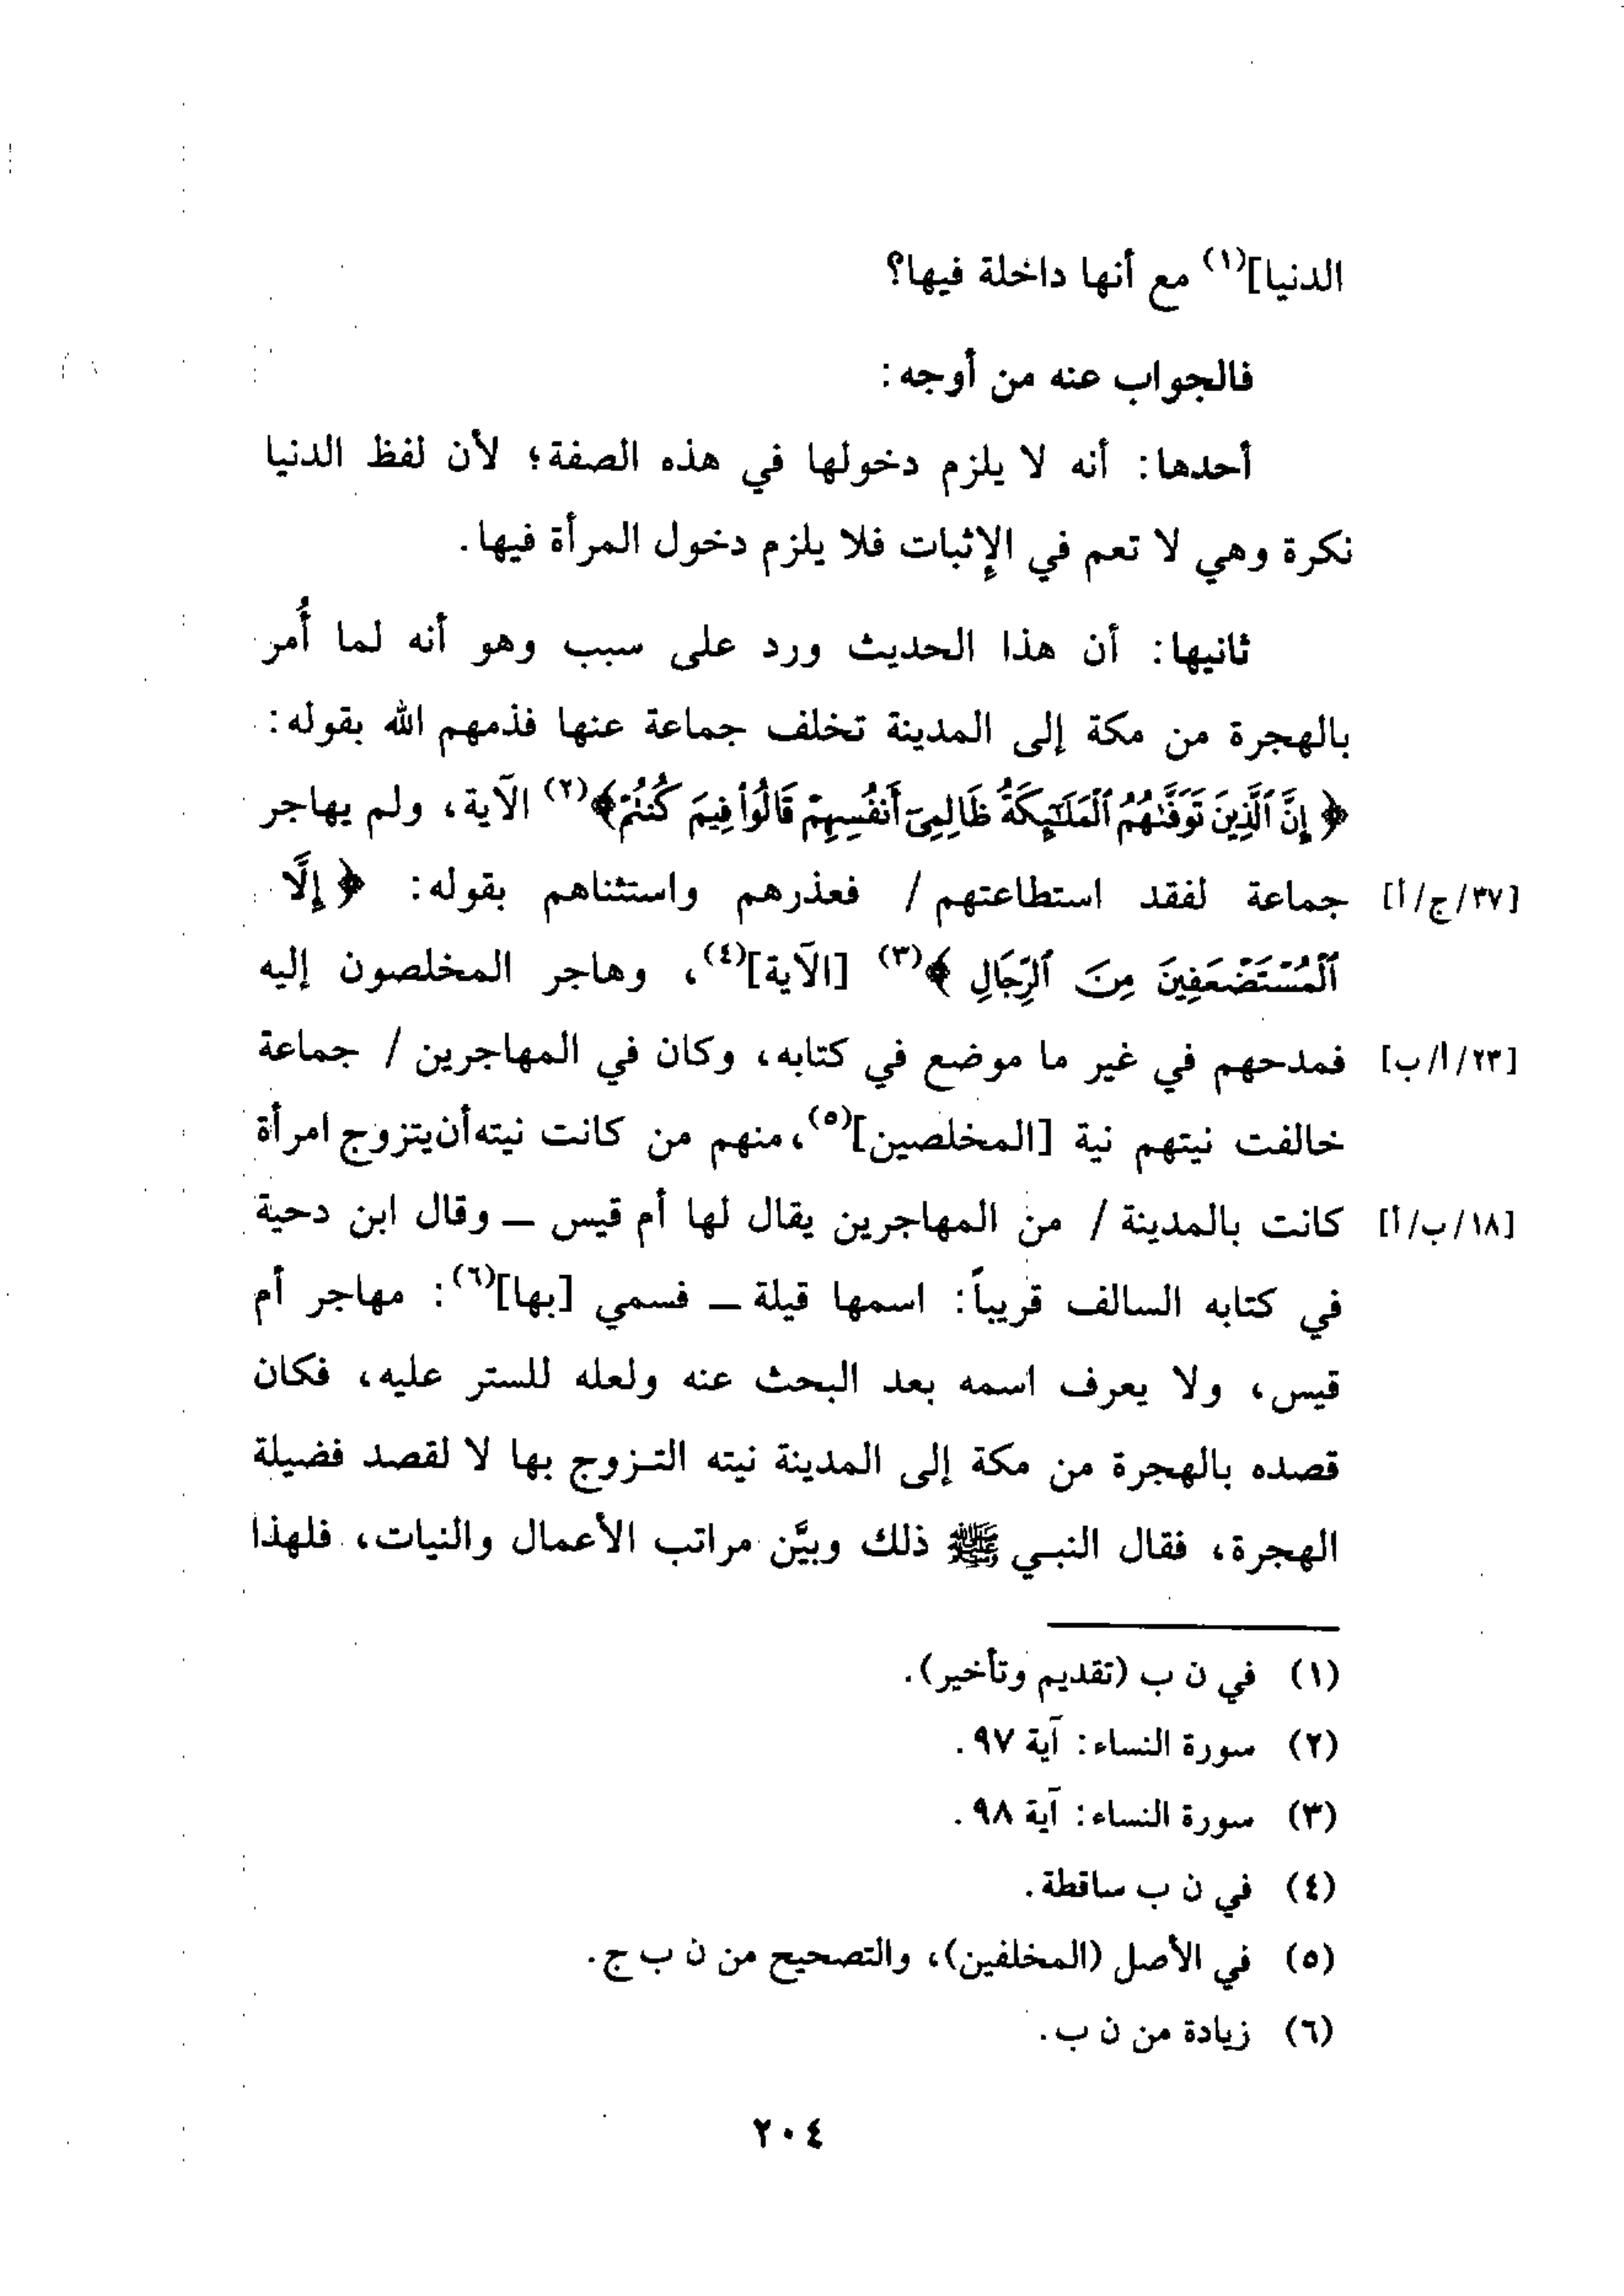 الدنيا](١) مع أنها داخلة فيها؟
فالجواب عنه من أوجه:
أحدها: أنه لا يلزم دخولها في هذه الصفة؛ لأن لفظ الدنيا
نكرة وهي لا تعم في الإِثبات فلا يلزم دخول المرأة فيها.
ثانيها: أن هذا الحديث ورد على سبب وهو أنه لما أُمر
بالهجرة من مكة إلى المدينة تخلف جماعة عنها فذمهم الله بقوله:
﴿إِنَّ ٱلَّذِينَ تَوَفَّىٰهُمُ ٱلْمَلَـٰٓئِكَةُ ظَالِمِىٓ أَنفُسِهِمْ قَالُوا۟ فِيمَ كُنتُمْ﴾(٢) الآية، ولم يهاجر
[٣٧/ج/أ] جماعة لفقد استطاعتهم / فعذرهم واستثناهم بقوله: ﴿إِلَّا
ٱلْمُسْتَضْعَفِينَ مِنَ ٱلرِّجَالِ﴾(٣) [الآية](٤)، وهاجر المخلصون إليه
[٢٣/أ/ب] فمدحهم في غير ما موضع في كتابه، وكان في المهاجرين / جماعة
خالفت نيتهم نية [المخلصين](٥)، منهم من كانت نيته أن يتزوج امرأة
[١٨/ب/أ] كانت بالمدينة / من المهاجرين يقال لها أم قيس ــ وقال ابن دحية
في كتابه السالف قريباً: اسمها قيلة ــ فسمي [بها](٦): مهاجر أم
قيس، ولا يعرف اسمه بعد البحث عنه ولعله للستر عليه، فكان
قصده بالهجرة من مكة إلى المدينة نيته التـزوج بها لا لقصد فضيلة
الهجرة، فقال النبـي ﷺ ذلك وبيَّن مراتب الأعمال والنيات، فلهذا
(١) في ن ب (تقديم وتأخير).
(٢) سورة النساء: آية ٩٧.
(٣) سورة النساء: آية ٩٨.
(٤) في ن ب ساقطة.
(٥) في الأصل (المخلفين)، والتصحيح من ن ب ج.
(٦) زيادة من ن ب.
٢٠٤